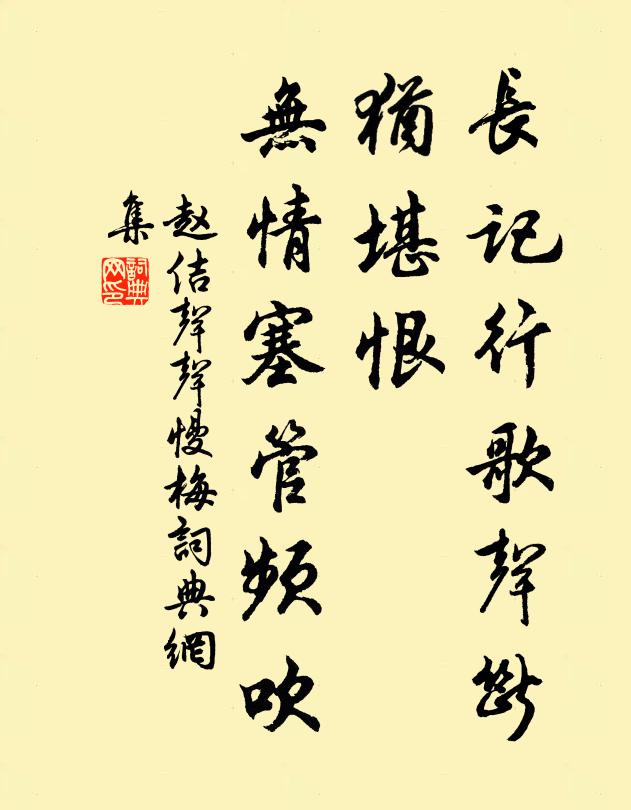 長記行歌聲斷
猶堪恨
無情塞管頻吹
赵佶聲聲慢梅詞典網
集
詞典
网印